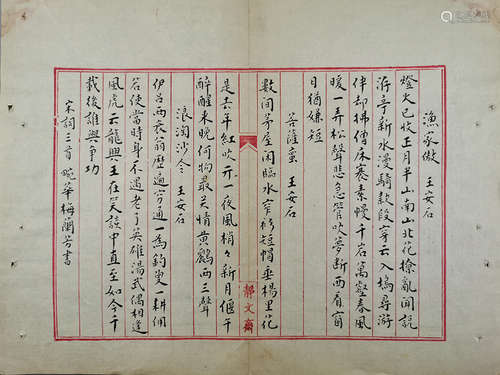 漁家傲 王安石
燈火已收正月半山南山北花撩亂聞説
洊亭新水漫騎款段穿云入塢尋游
伴却拂僧床褰素幔千岩萬壑春風
暖一弄松聲悲急管吹夢斷西看窗
日猶嫌短
菩薩蛮 王安石
數間茅屋閒臨水窄衫短帽垂楊里花
是去年紅吹开一夜風梢々新月偃午
醉醒來晚何物最关情黄鸝兩三聲
浪淘沙令 王安石
伊呂兩衰翁歷遍穷通一為釣叟一耕佣
若使當時身不遇老了英雄湯武偶相逢
風虎云龍興王在笑談中直至如今千
載後誰與争功
宋詞三首 畹華梅蘭芳書
靜文齋